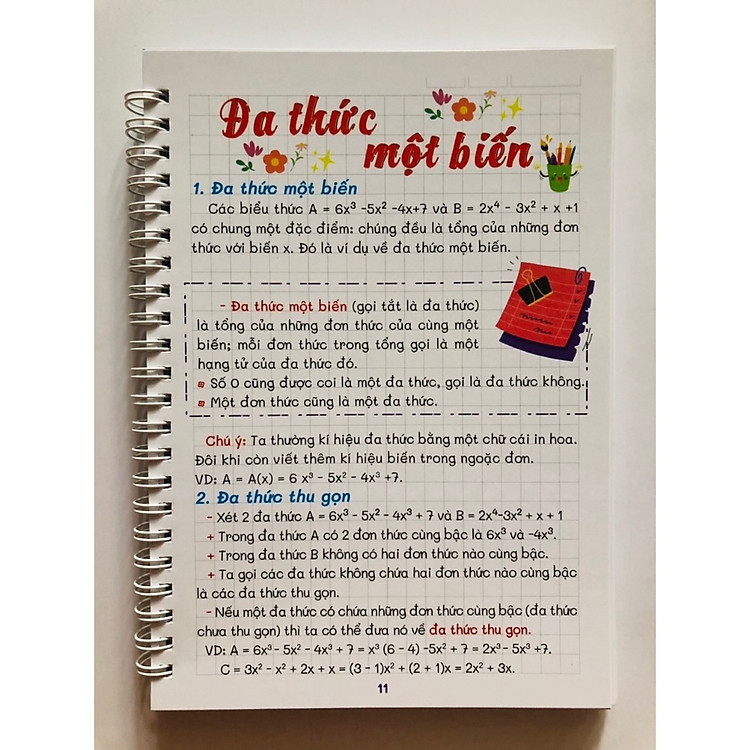 Đa thức
một biến
1. Đa thức một biến
Các biểu thức A = 6x³ -5x² -4x+7 và B = 2x⁴ - 3x² + x +1
có chung một đặc điểm: chúng đều là tổng của những đơn
thức với biến x. Đó là ví dụ về đa thức một biến.
- Đa thức một biến (gọi tắt là đa thức)
là tổng của những đơn thức của cùng một
biến; mỗi đơn thức trong tổng gọi là một
hạng tử của đa thức đó.
Số 0 cũng được coi là một đa thức, gọi là đa thức không.
Một đơn thức cũng là một đa thức.
Chú ý: Ta thường kí hiệu đa thức bằng một chữ cái in hoa.
Đôi khi còn viết thêm kí hiệu biến trong ngoặc đơn.
VD: A = A(x) = 6 x³ - 5x² - 4x³ +7.
2. Đa thức thu gọn
- Xét 2 đa thức A = 6x³ - 5x² - 4x³ + 7 và B = 2x⁴-3x² + x + 1
+ Trong đa thức A có 2 đơn thức cùng bậc là 6x³ và -4x³.
+ Trong đa thức B không có hai đơn thức nào cùng bậc.
+ Ta gọi các đa thức không chứa hai đơn thức nào cùng bậc
là các đa thức thu gọn.
- Nếu một đa thức có chứa những đơn thức cùng bậc (đa thức
chưa thu gọn) thì ta có thể đưa nó về đa thức thu gọn.
VD: A = 6x³- 5x² - 4x³ + 7 = x³ (6 - 4) -5x² + 7 = 2x³- 5x³ +7.
C = 3x² - x² + 2x + x = (3 - 1)x² + (2 + 1)x = 2x² + 3x.
11